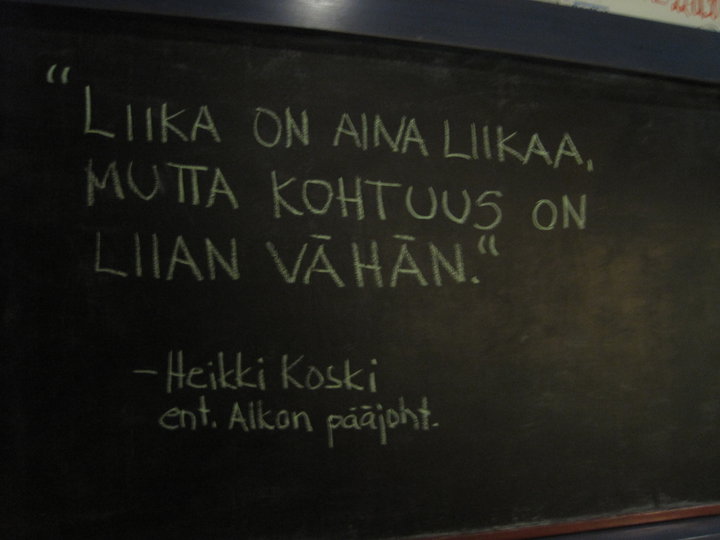 “LIIKA ON AINA LIIKAA,
MUTTA KOHTUUS ON
LIIAN VÄHÄN.“
– Heikki Koski
ent. Alkon pääjoht.